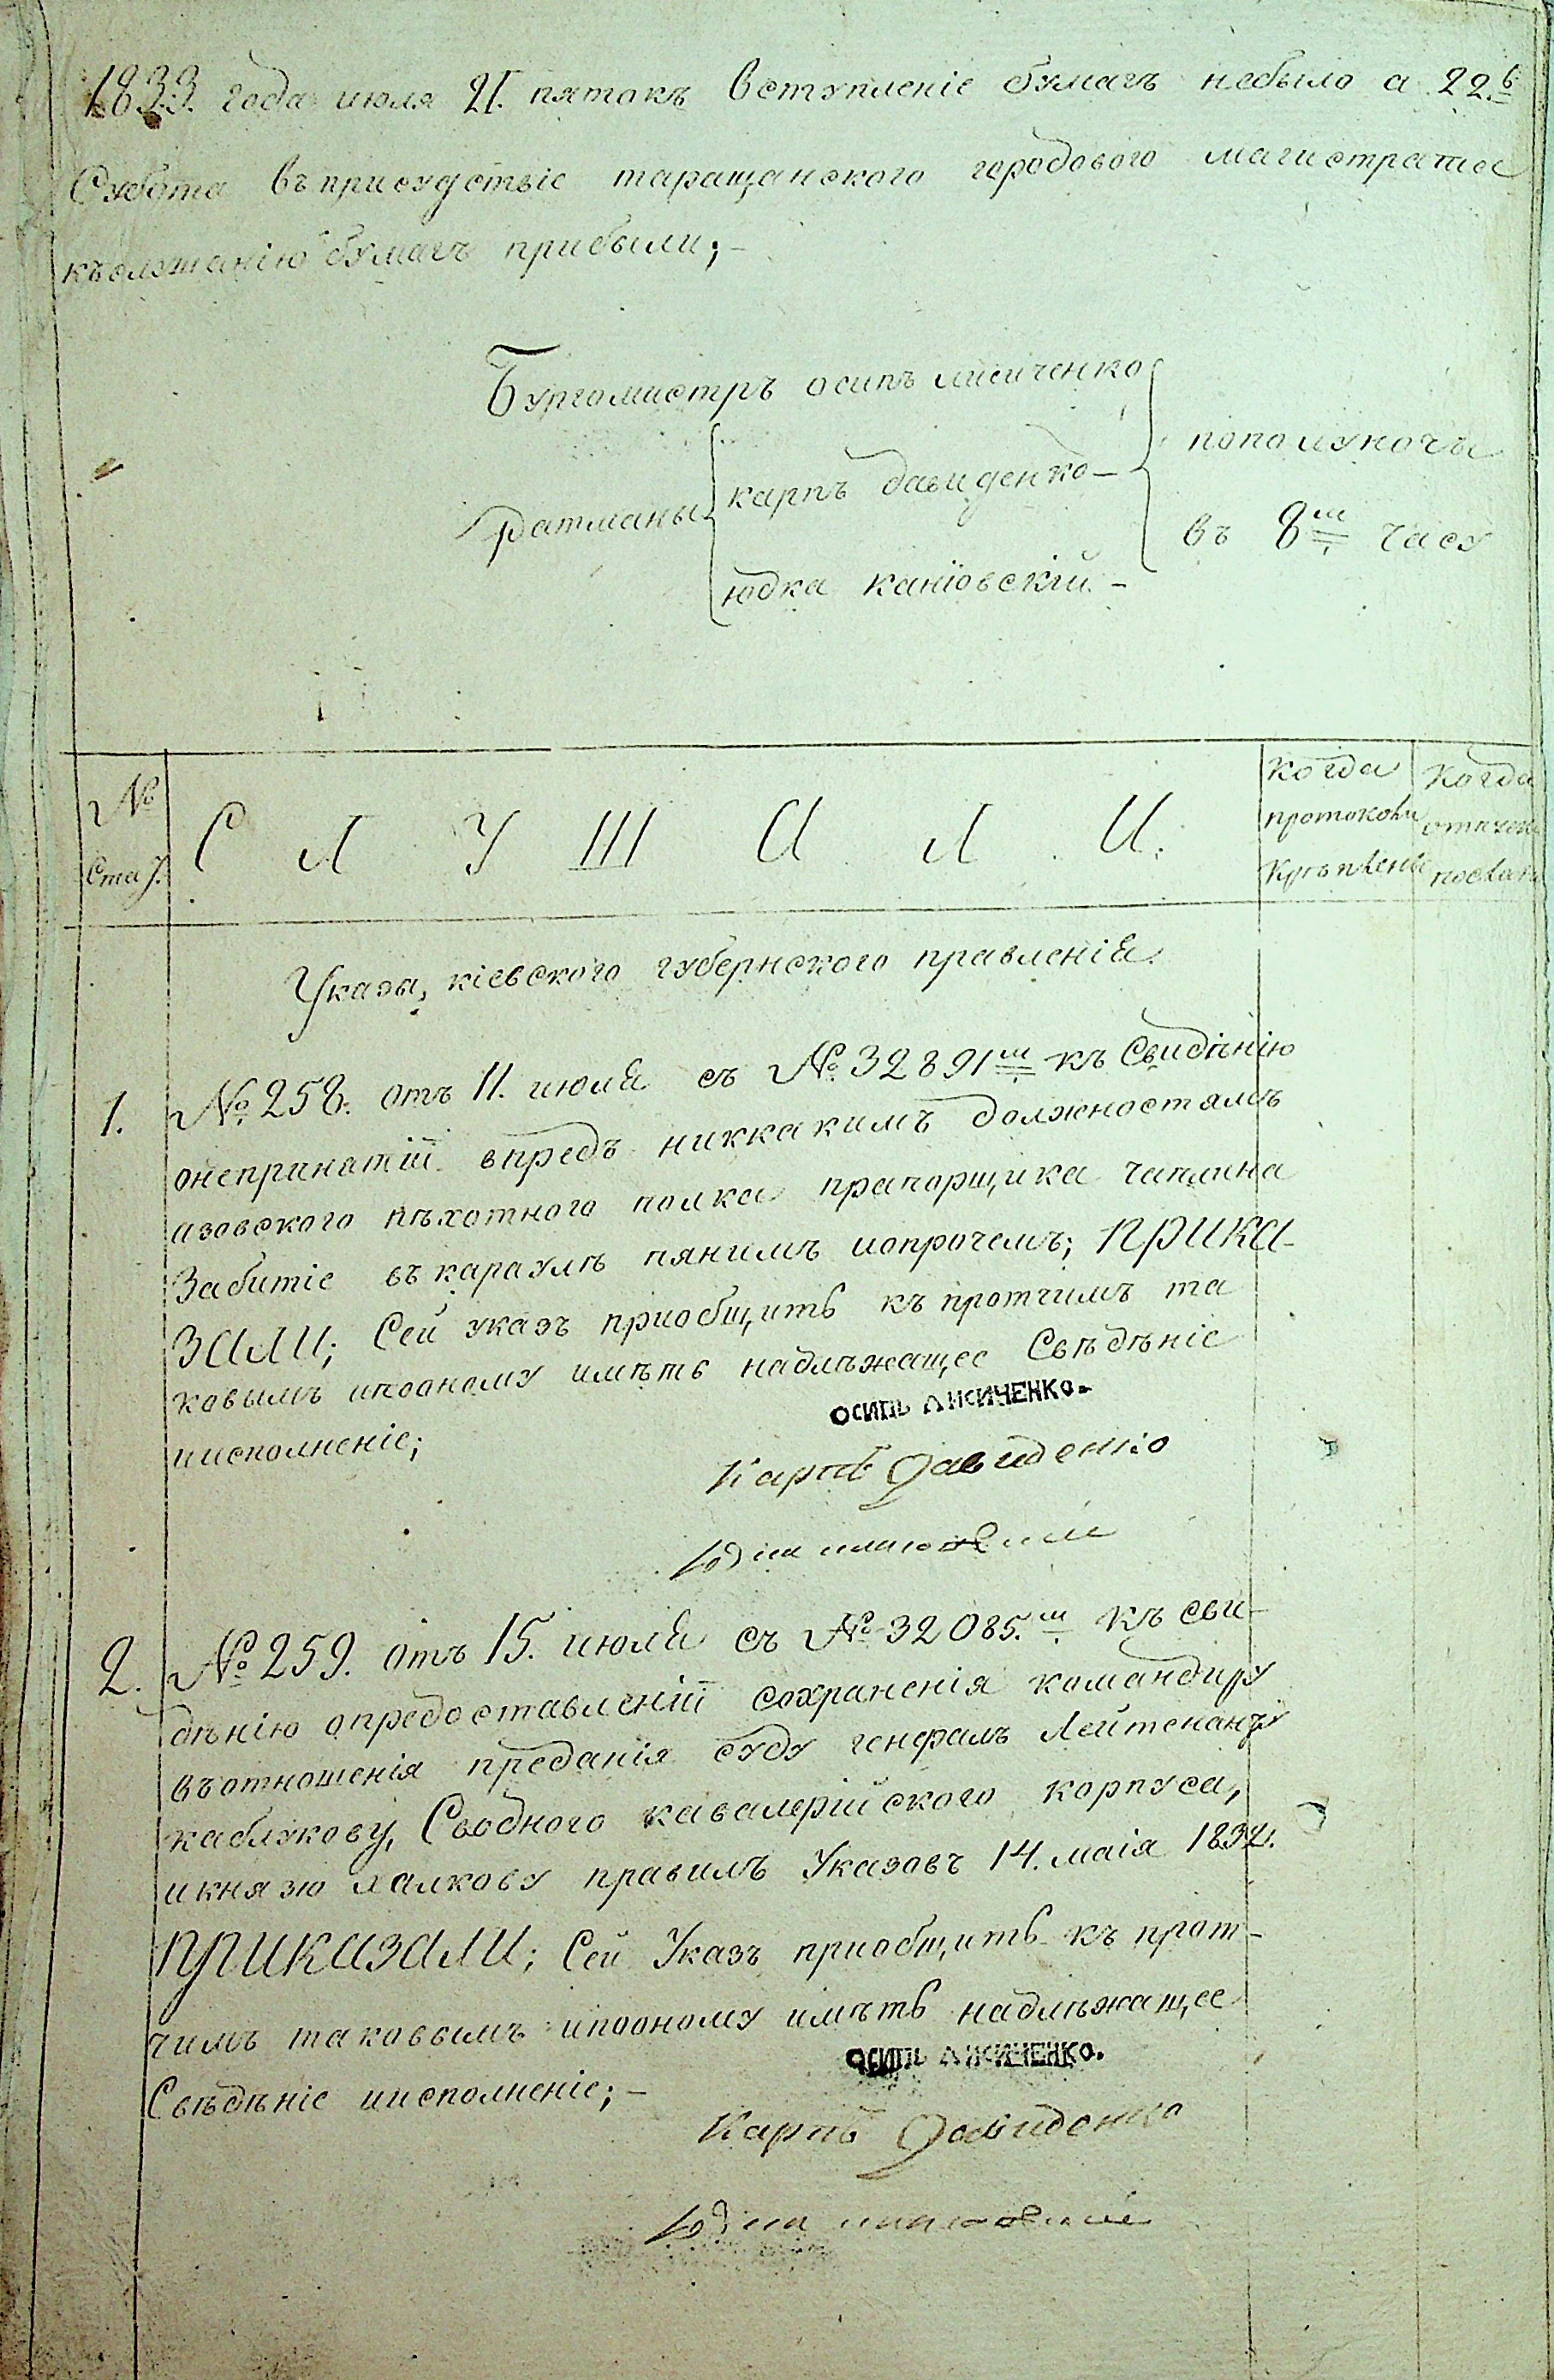 1833. года июля 21. пятокъ вступленіе бумагъ небыло а 22.в
Субота въ присудствіе таращанского городового магистрата
къ слушанію бумагъ прибыли;–
Бургомистръ осипъ лисиченко
Ратманы
карпъ давиденко–
юдка каніовскій.–
пополуночи
въ 8м часу
№
Стат.
С Л У Ш А Л И.
когда
протоколы
кръплены
когда
отпуск
посланы
Указы, кіевского губернского правленія.
1. № 258. отъ 11. июля съ № 32891м къ Свидѣнію
онепринатіи впредъ никкакимъ должностямъ
азовского пѣхотного полка прапорщика чаплина
Забитіе въ караулѣ пянимъ ипрочемъ; ПРИКА-
ЗАЛИ; Сей указъ приобщить къ протчимъ та
ковымъ ипооному имѣть надлѣжащее Свѣдѣніе
иисполненіе;
осипъ лисиченко.
Карпъ Давиденко
2. № 259. отъ 15. июля съ № 32085.м къ сви-
дѣнію опредоставленіи сохраненія командиру
въ отношенія преданія суду генералъ Лейтенанту
каблукову, Сводного кавалерійского корпуса,
икнязю халкову правилъ Указовъ 14. маія 1832.
ПРИКАЗАЛИ; Сей Указъ приобщить къ прот-
чимъ таковымъ ипооному имѣть надлѣжащее
Свѣдѣніе иисполненіе;–
осипъ лисиченко.
Карпъ Давиденко